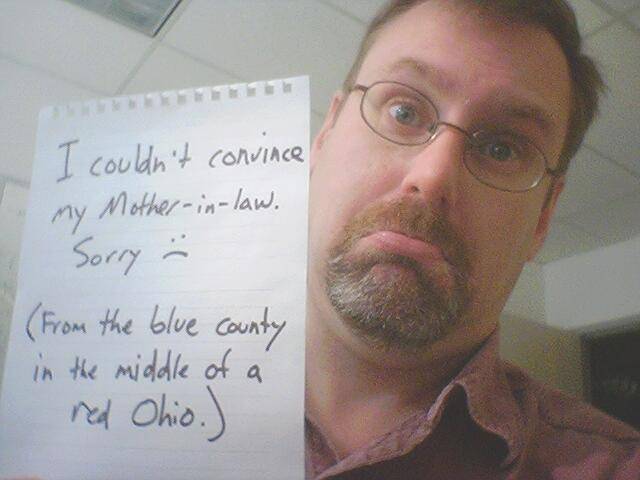 I couldn't convince
my Mother-in-law.
Sorry :(
(From the blue county
in the middle of a
red Ohio.)